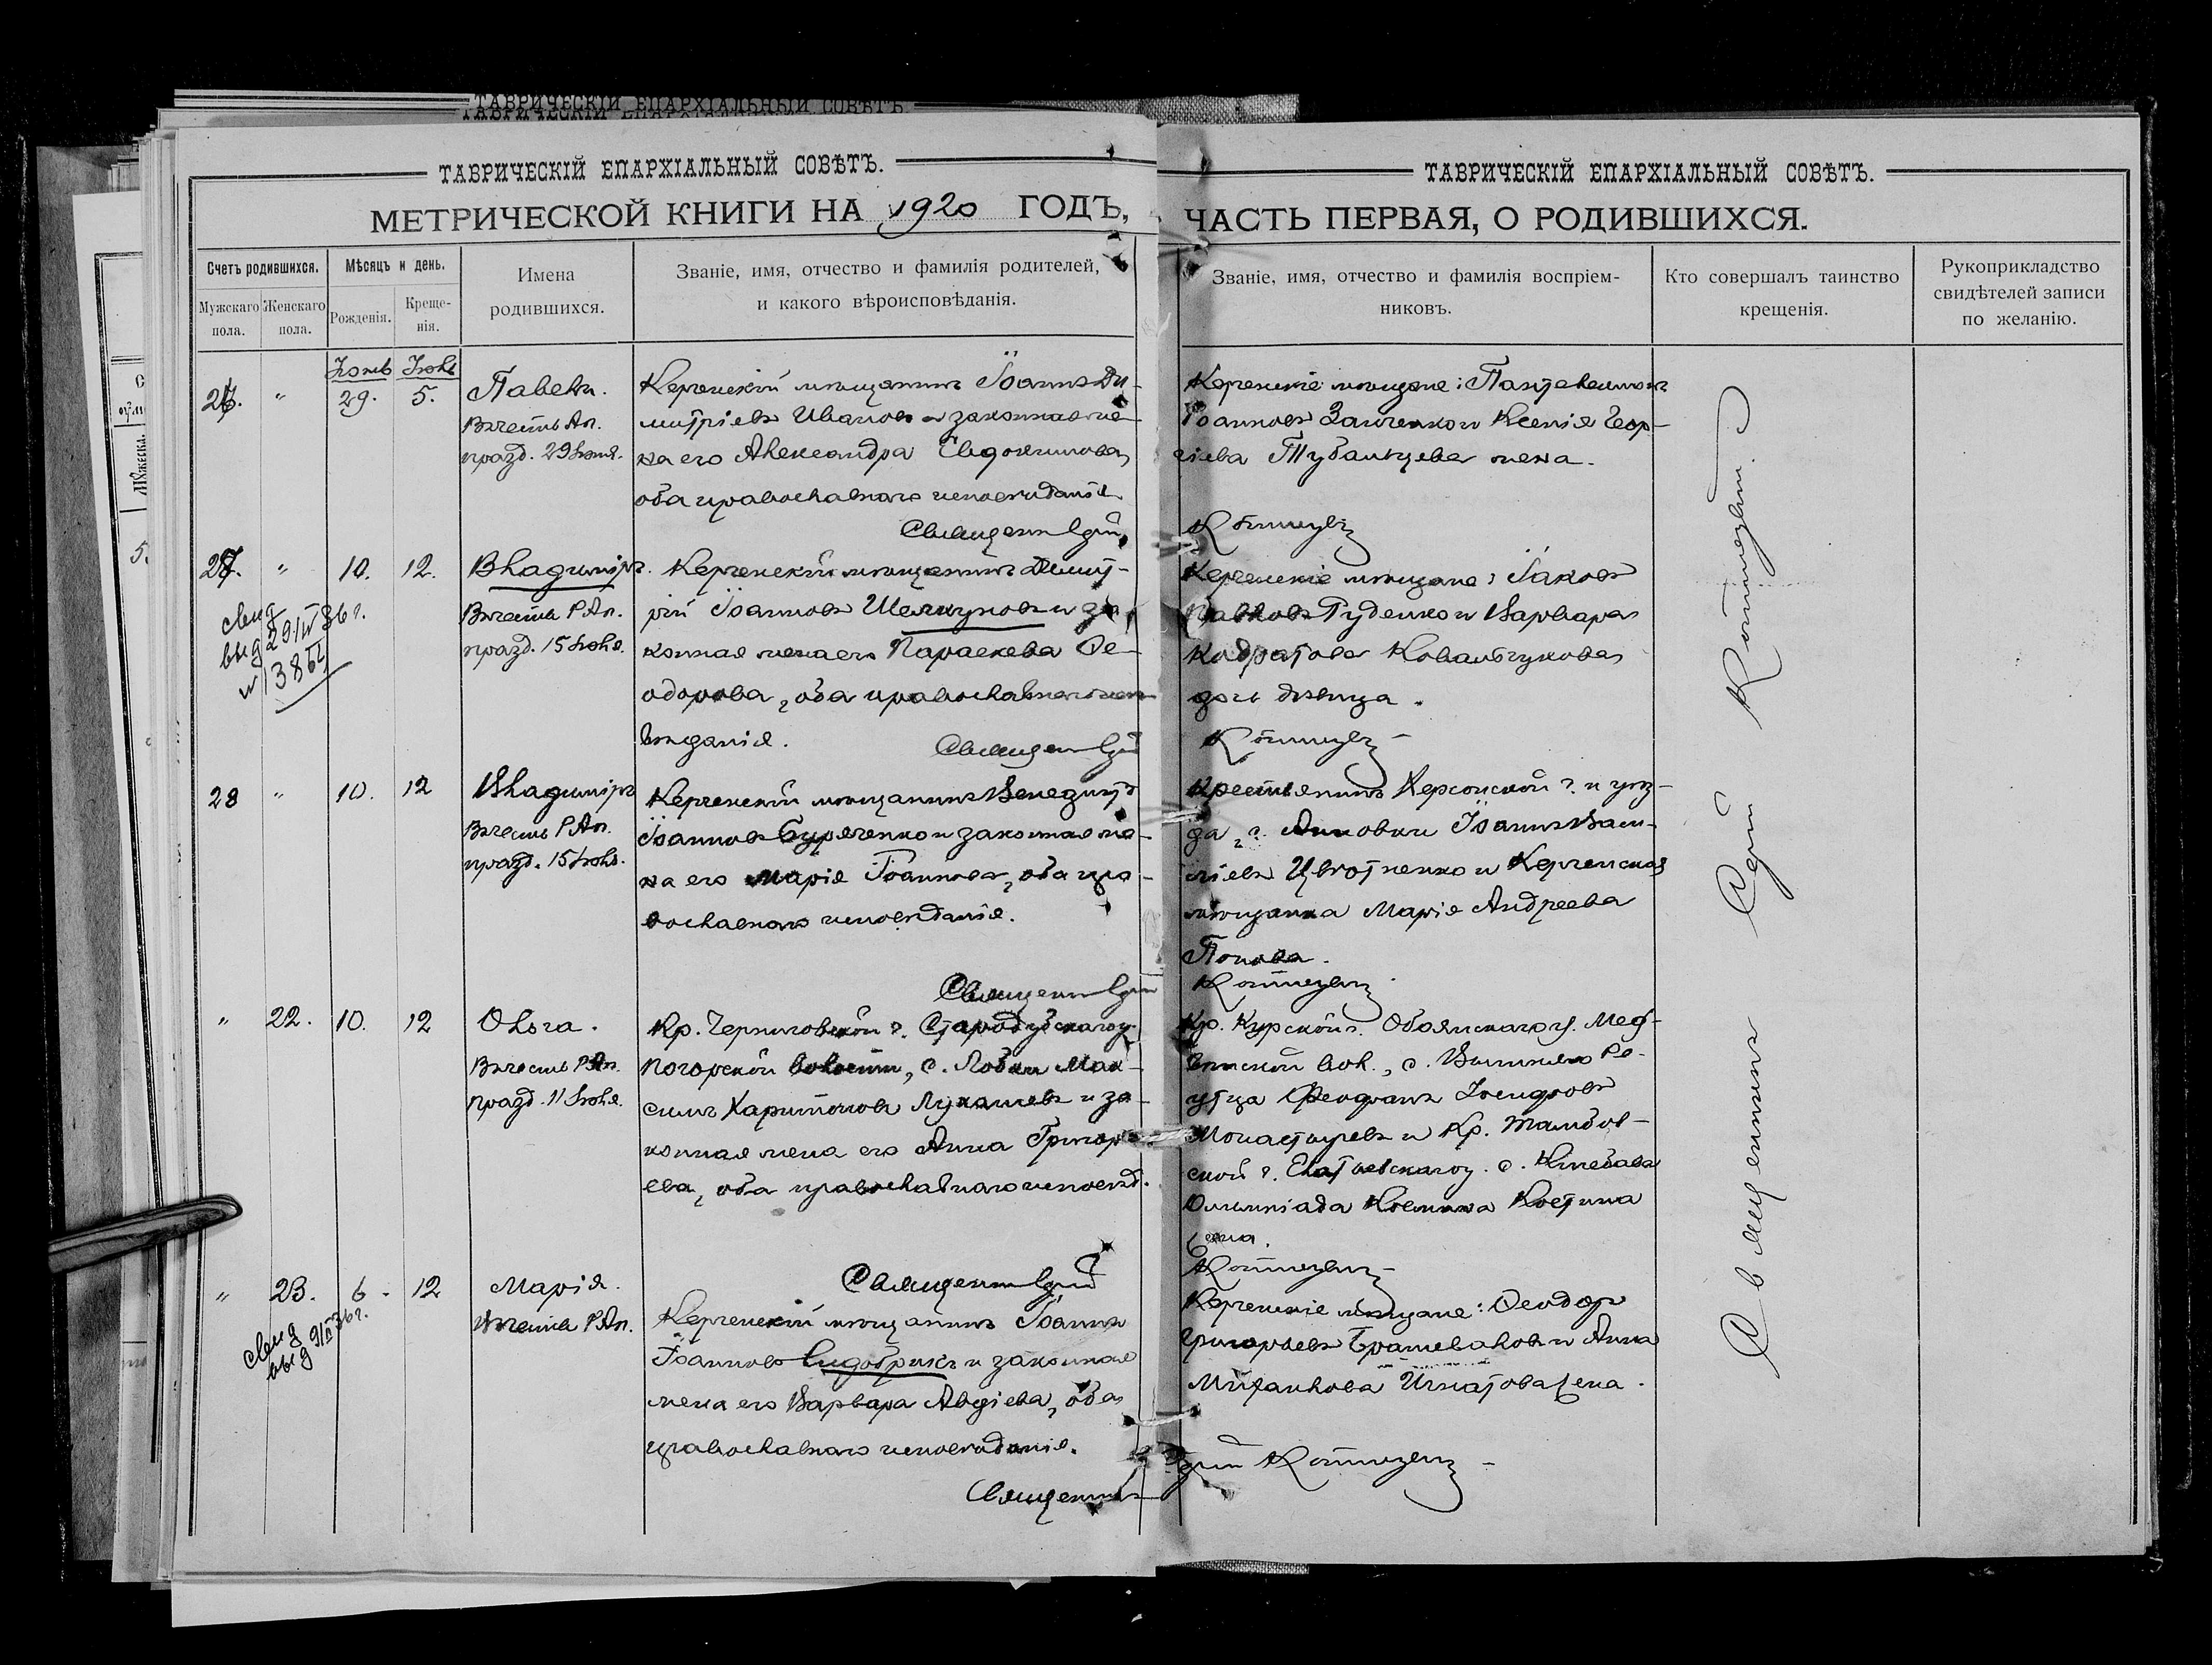 ТАВРИЧЕСКІЙ ЕПАРХІАЛЬНЫЙ СОВѢТЪ
ТАВРИЧЕСКІЙ ЕПАРХІАЛЬНЫЙ СОВѢТЪ.
МЕТРИЧЕСКОЙ КНИГИ НА 1920 ГОДЪ,
Счетъ родившихся.
Мужскаго пола.
Женскаго пола.
Мѣсяцъ и день.
Рожденія.
Креще-
нія.
Имена
родившихся.
Званіе, имя, отчество и фамилія родителей,
и какого вѣроисповѣданія.
ТАВРИЧЕСКІЙ ЕПАРХІАЛЬНЫЙ СОВѢТЪ.
ЧАСТЬ ПЕРВАЯ, О РОДИВШИХСЯ.
Званіе, имя, отчество и фамилія воспріем-
никовъ.
Кто совершалъ таинство
крещенія.
Рукоприкладство
свидѣтелей записи
по желанію.
Іюнь Іюль
26. " 29. 5. Павелъ.
Въ честь Ап.
празд. 29 Іюня.
Керченскій мѣщанинъ Іоаннъ Ди-
митріевъ Ивановъ и законная же-
на его Александра Евдокимова,
оба православнаго исповѣданія
Священникъ
Керченскіе мѣщане: Пантелеимонъ
Іоанновъ Заиченко и Ксенія Геор-
гіева Тубальцева жена.
27. " 10. 12. Владиміръ.
Въ честь Р Ап.
празд. 15 Іюля.
свид
выд 29/IV 36 г.
Керченскій мѣщанинъ Димит-
рій Іоанновъ Шелкуновъ и за-
конная жена его Параскева Ѳе-
одорова, оба православнаго испо-
вѣданія.
Священникъ
Керченскіе мѣщане: Іаковъ
Павловъ Руденко и Варвара
Кодратова Ковальчукова
дочь дѣвица.
28 " 10. 12 Владиміръ
Въ честь Р Ап.
празд. 15 Іюля.
Керченскій мѣщанинъ Венедиктъ
Іоанновъ Буряченко и законная же-
на его Марія Іоаннова, оба пра-
вославнаго исповѣданія.
Священникъ
Крестьянинъ Херсонской г. и уѣз-
да, с. Анновки Іоаннъ Васи-
ліевъ Цвѣтненко и Керченская
мѣщанка Марія Андреева
Попова.
" 22. 10. 12 Ольга.
Въ честь Р Ап.
празд. 11 Іюля.
Кр. Черниговской г. Стародубскаго у.
Погорской волости, с. Лобки Мак-
симъ Харитоновъ Лукашевъ и за-
конная жена его Анна Григорь-
ева, оба православнаго исповѣд.
Священникъ
Кр. Курской г. Обоянскаго у. Мед-
венской вол., с.
Ѳеофанъ Исидоровъ
Монастыревъ и Кр. Тамбов-
ской г. Елатомскаго у. с.
Олимпіада Костина
жена.
" 23. 6. 12 Марія.
Въ честь Р Ап.
свид
выд
Керченскій мѣщанинъ Іоаннъ
Іоанновъ Сидобрикъ и законная
жена его Варвара Авдіева, оба
православнаго исповѣданія.
Священникъ
Керченскіе мѣщане: Ѳеодоръ
Григорьевъ Брашевановъ и Анна
Михаилова Игнатова жена.
Священникъ